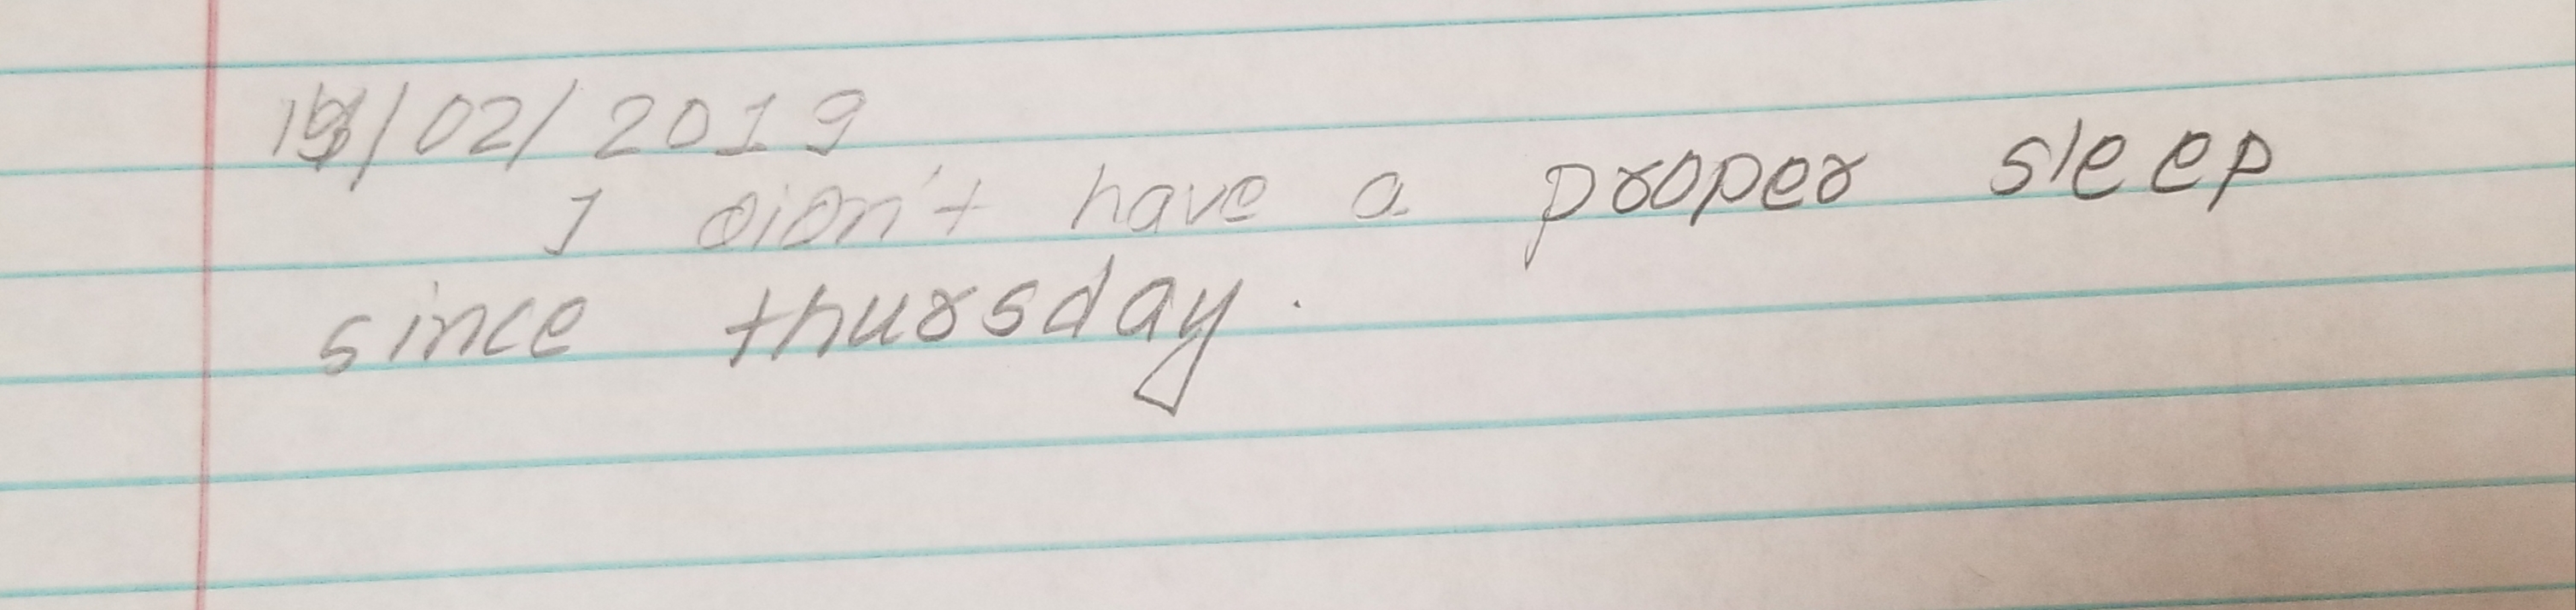 /02/2019
I didn't have a proper sleep
since thursday.